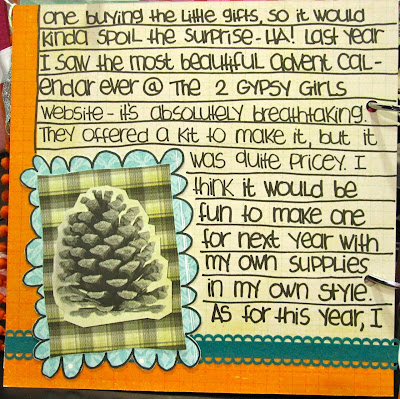 one buying the little gifts, so it would
kinda spoil the surprise - HA! Last year
I saw the most beautiful advent cal-
endar ever @ The 2 Gypsy Girls
website - it's absolutely breathtaking.
They offered a kit to make it, but it
was quite pricey. I
think it would be
fun to make one
for next year with
my own supplies
in my own style.
As for this year, I